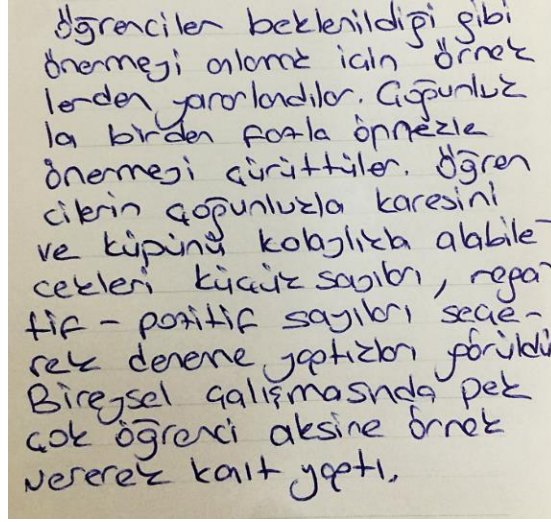 Öğrenciler beklenildiği gibi
önermeyi anlamak için örnek
lerden yararlandılar. Çoğunluk
la birden fazla örnekle
önermeyi çürüttüler. Öğren
cilerin çoğunlukla karesini
ve küpünü kolaylıkla alabile-
cekleri küçük sayıları, nega-
tif - pozitif sayıları seçe-
rek deneme yaptıkları görüldü
Bireysel çalışmasnda pek
çok öğrenci aksine örnek
vererek kanıt yaptı.